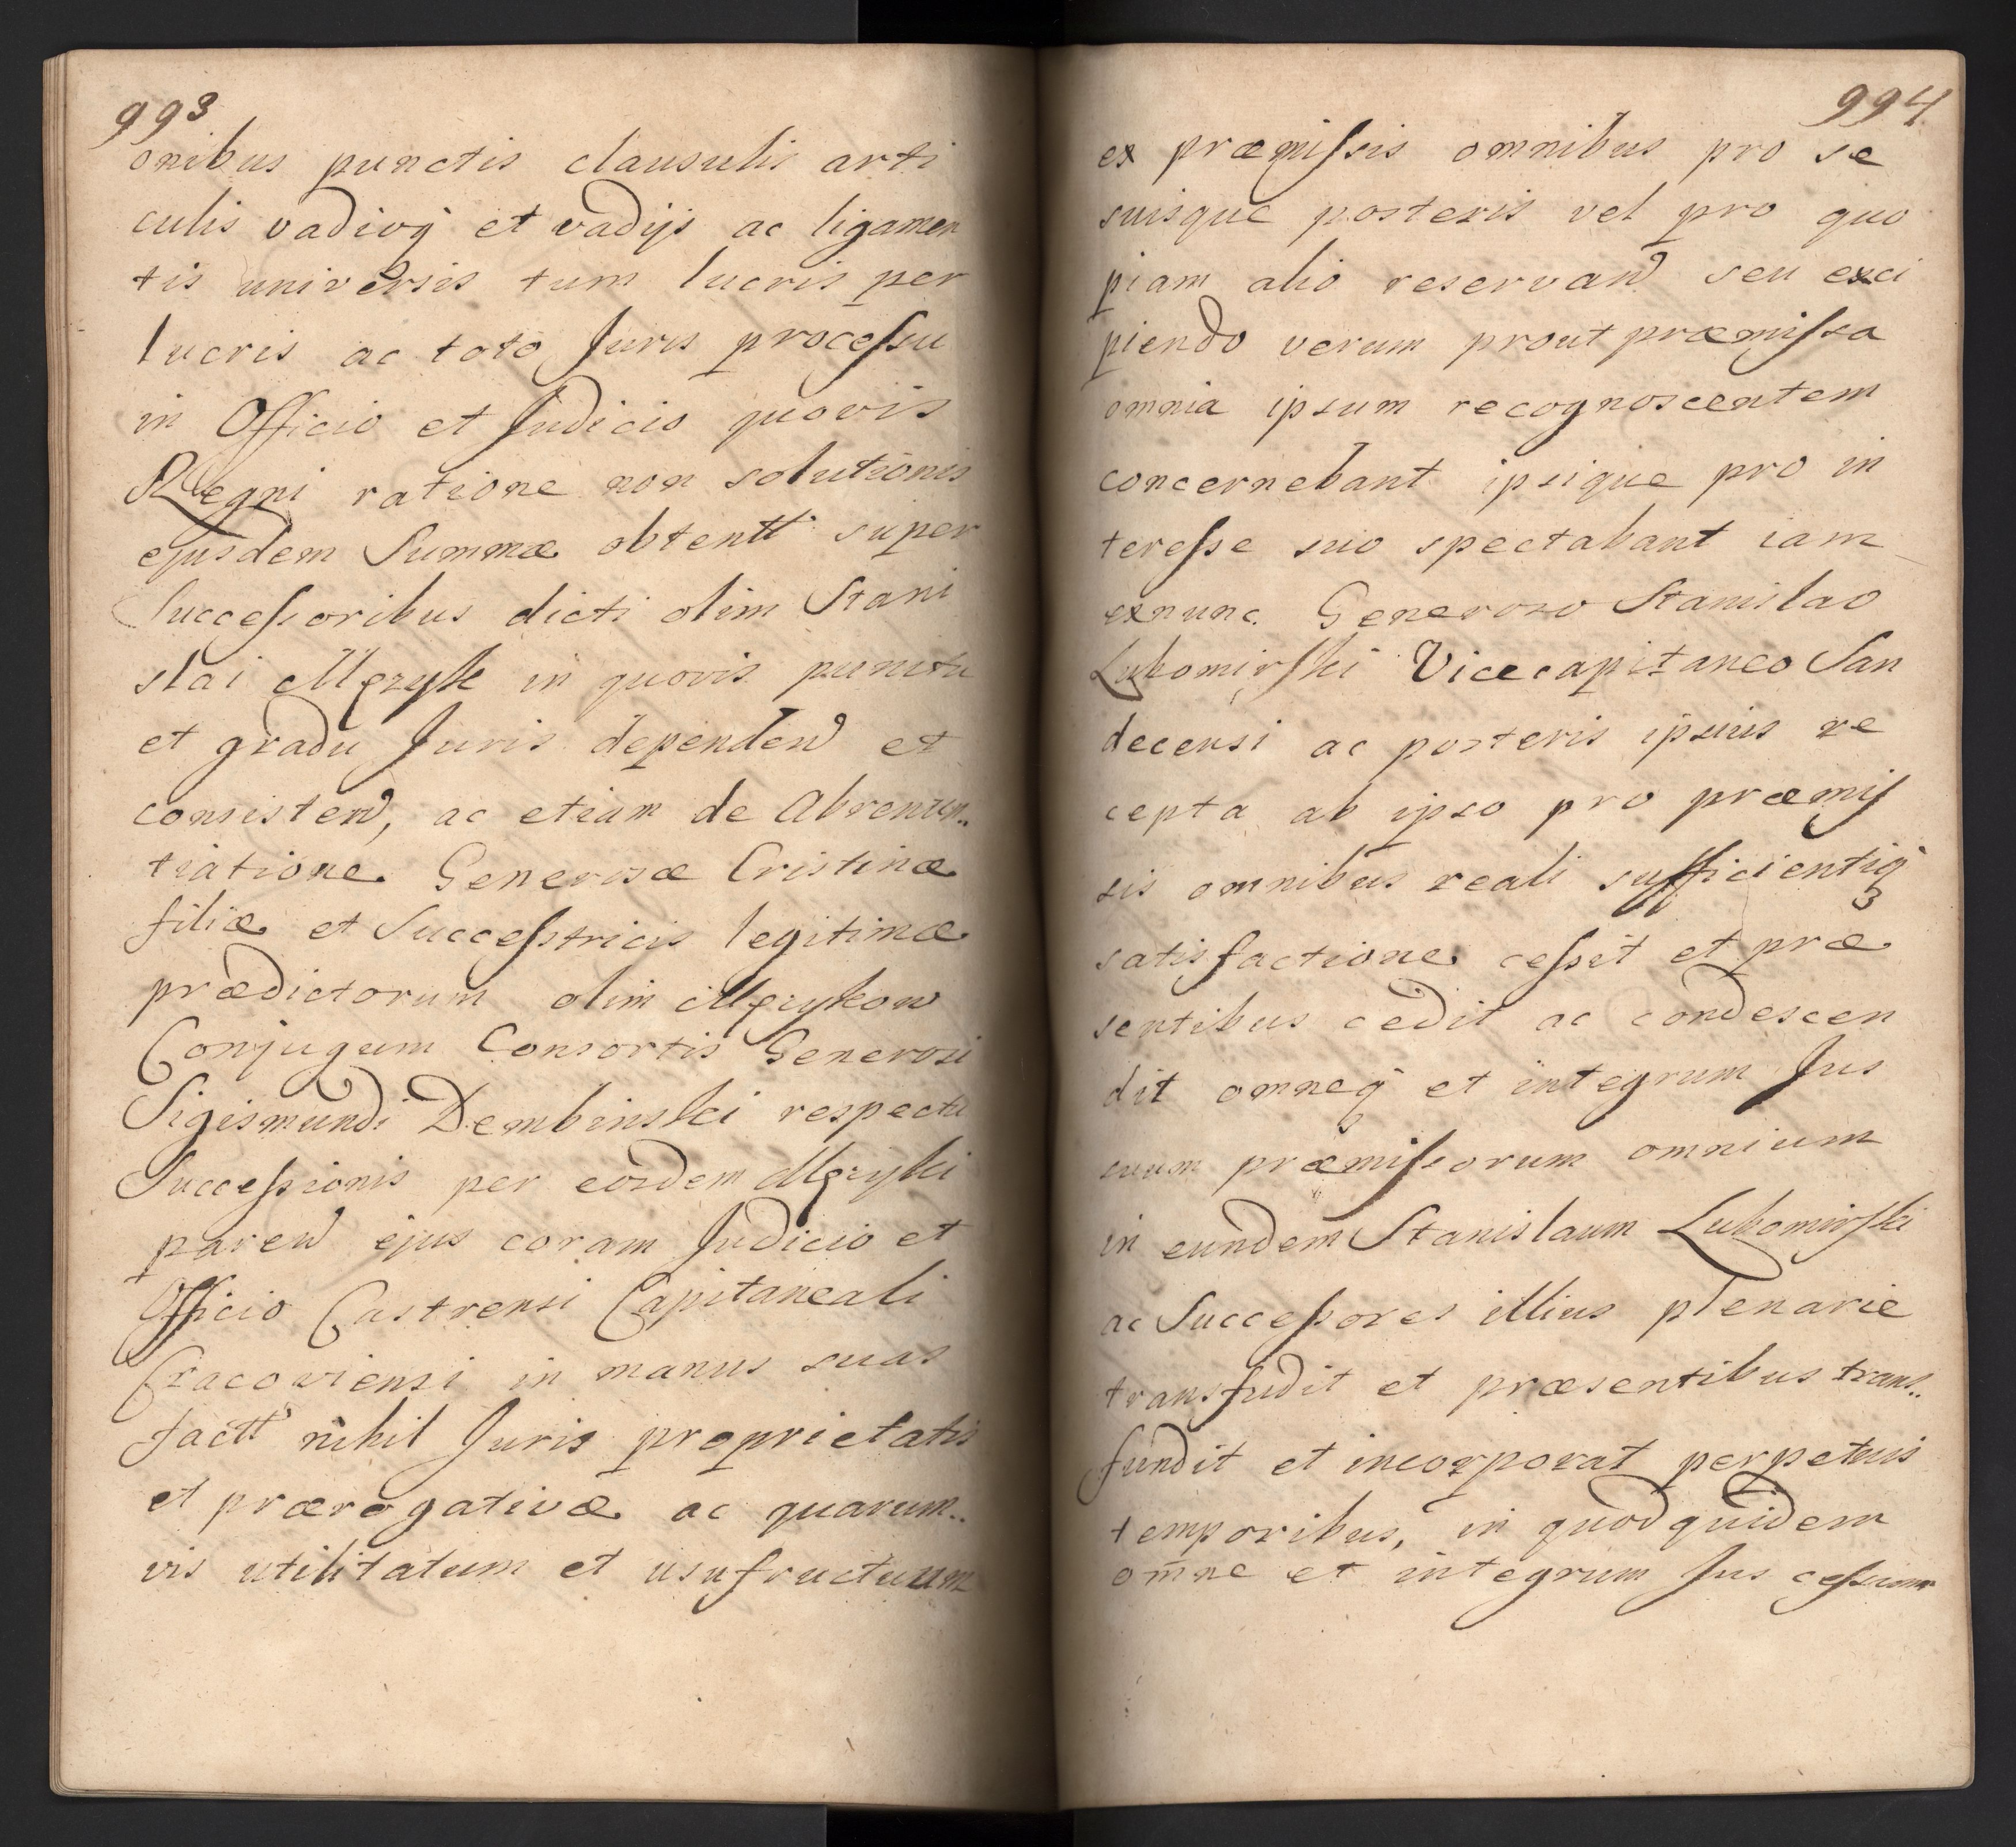 993
onibus punctis clausulis arti
culis vadioq et vadijs ac ligamen
tis universis tum lucris per
lucris ac toto Juris processu
in Officio et Judicio quovis
Regni ratione non solutionis
ejusdem Summæ obtentt super
Successoribus dicti olim Stani
slai Męzyk in quovis punctu
et gradu Juris dependen et
consisten, ac etiam de Abrenun..
tiatione Generosæ Cristinæ
filiæ et Successtricis legitimæ
prædictorum olim Męzykow
Conjugum Consortis Generosi
Sigismundi Dembinski respectu
Successionis per eosdem Męzyki
paren ejus coram Judicio et
Officio Castrensi Capitaneali
Cracoviensi in manus suas
factt nihil Juris proprietatis
et prærogativæ ac quarum..
vis utilitatum et usufructuum
994
ex præmissis omnibus pro se
suisque posteris vel pro quo
piam alio reservan seu exci
piendo verum prout præmissa
omnia ipsum recognoscentem
concernebant ipsique pro in
teresse suo spectabant iam
exnunc Generoso Stanislao
Lubomirski Vicecapitaneo San
decensi ac posteris ipsius re
cepta ab ipso pro præmis
sis omnibus reali sufficientiq
satisfactione cessit et præ
sentibus cedit ac condescen
dit omneq et integrum Jus
suum præmissorum omnium
in eundem Stanislaum Lubomirski
ac Successores illius plenarie
transfudit et præsentibus trans..
fundit et incorporat perpetuis
temporibus, in quod quidem
om̄ne et integrum Jus cessum